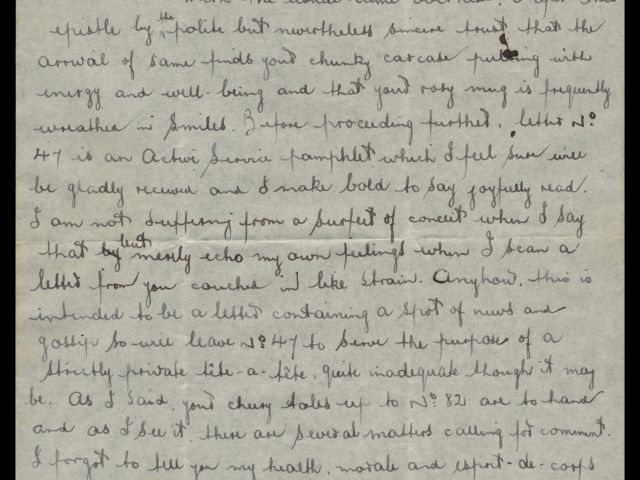 epistle by the polite but nevertheless sincere trust that the
arrival of same finds your chunky carcase pulsing with
energy and well-being and that your rosy mug is frequently
wreathed in smiles. Before proceeding further, letter No
47 is an Active Service pamphlet which I feel sure will
be gladly received and I make bold to say joyfully read.
I am not suffering from a surfeit of conceit when I say
that but merely echo my own feelings when I scan a
letter from you couched in like strain. Anyhow, this is
intended to be a letter containing a spot of news and
gossip so will leave No 47 to serve the purpose of a
strictly private tête-a-tête, quite inadequate though it may
be. As I said, your cheery tales up to No 82 are to hand
and as I see it there are several matters calling for comment.
I forgot to tell you my health, morale and esprit-de-corps